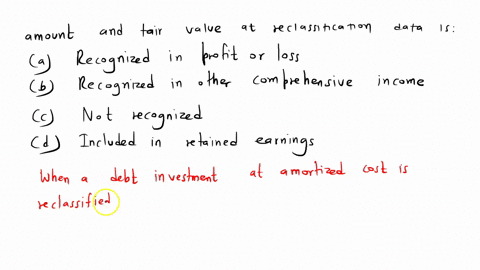 amount and fair value at reclassification data is:
(a) Recognized in profit or loss
(b) Recognized in other comprehensive income
(c) Not recognized
(d) Included in retained earnings
When a debt investment at amortized cost is
reclassified